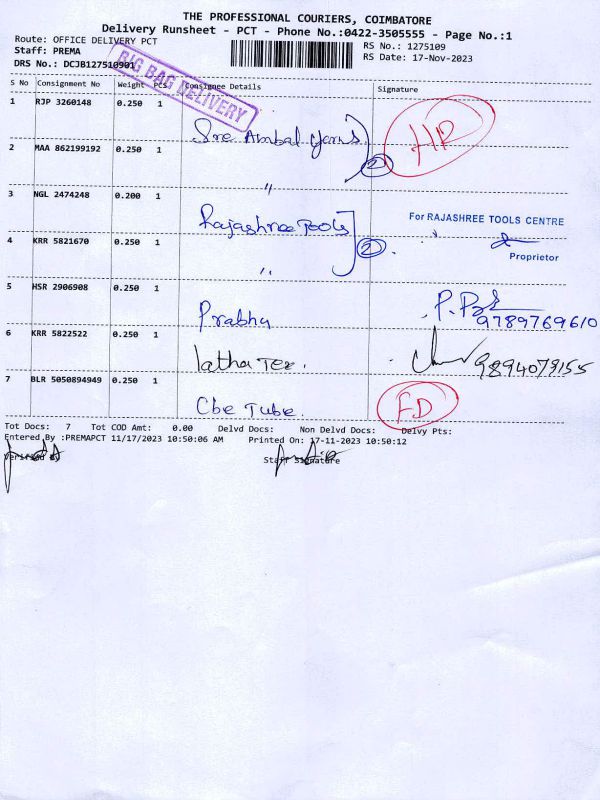 THE PROFESSIONAL COURIERS, COIMBATORE
Delivery Runsheet - PCT - Phone No.:0422-3505555 - Page No.:1
Route: OFFICE DELIVERY PCT
RS No.: 1275109
Staff: PREMA
RS Date: 17-Nov-2023
DRS No.: DCJB127510901
BIG BAG DELIVERY
S No Consignment No Weight PCS Consignee Details Signature
1 RJP 3260148 0.250 1
Sree Ambal Yarns HD
2 MAA 862199192 0.250 1
2
〃
3 NGL 2474248 0.200 1
Rajashree Tools For RAJASHREE TOOLS CENTRE
4 KRR 5821670 0.250 1
2
Proprietor
〃
5 HSR 2906908 0.250 1
Prabhu 9789769610
6 KRR 5822522 0.250 1
latha Tex. 9894079155
7 BLR 5050894949 0.250 1
Cbe Tube. FD
Tot Docs: 7 Tot COD Amt: 0.00 Delvd Docs: Non Delvd Docs: Delvy Pts:
Entered By :PREMAPCT 11/17/2023 10:50:06 AM Printed On: 17-11-2023 10:50:12
Verified By Staff Signature